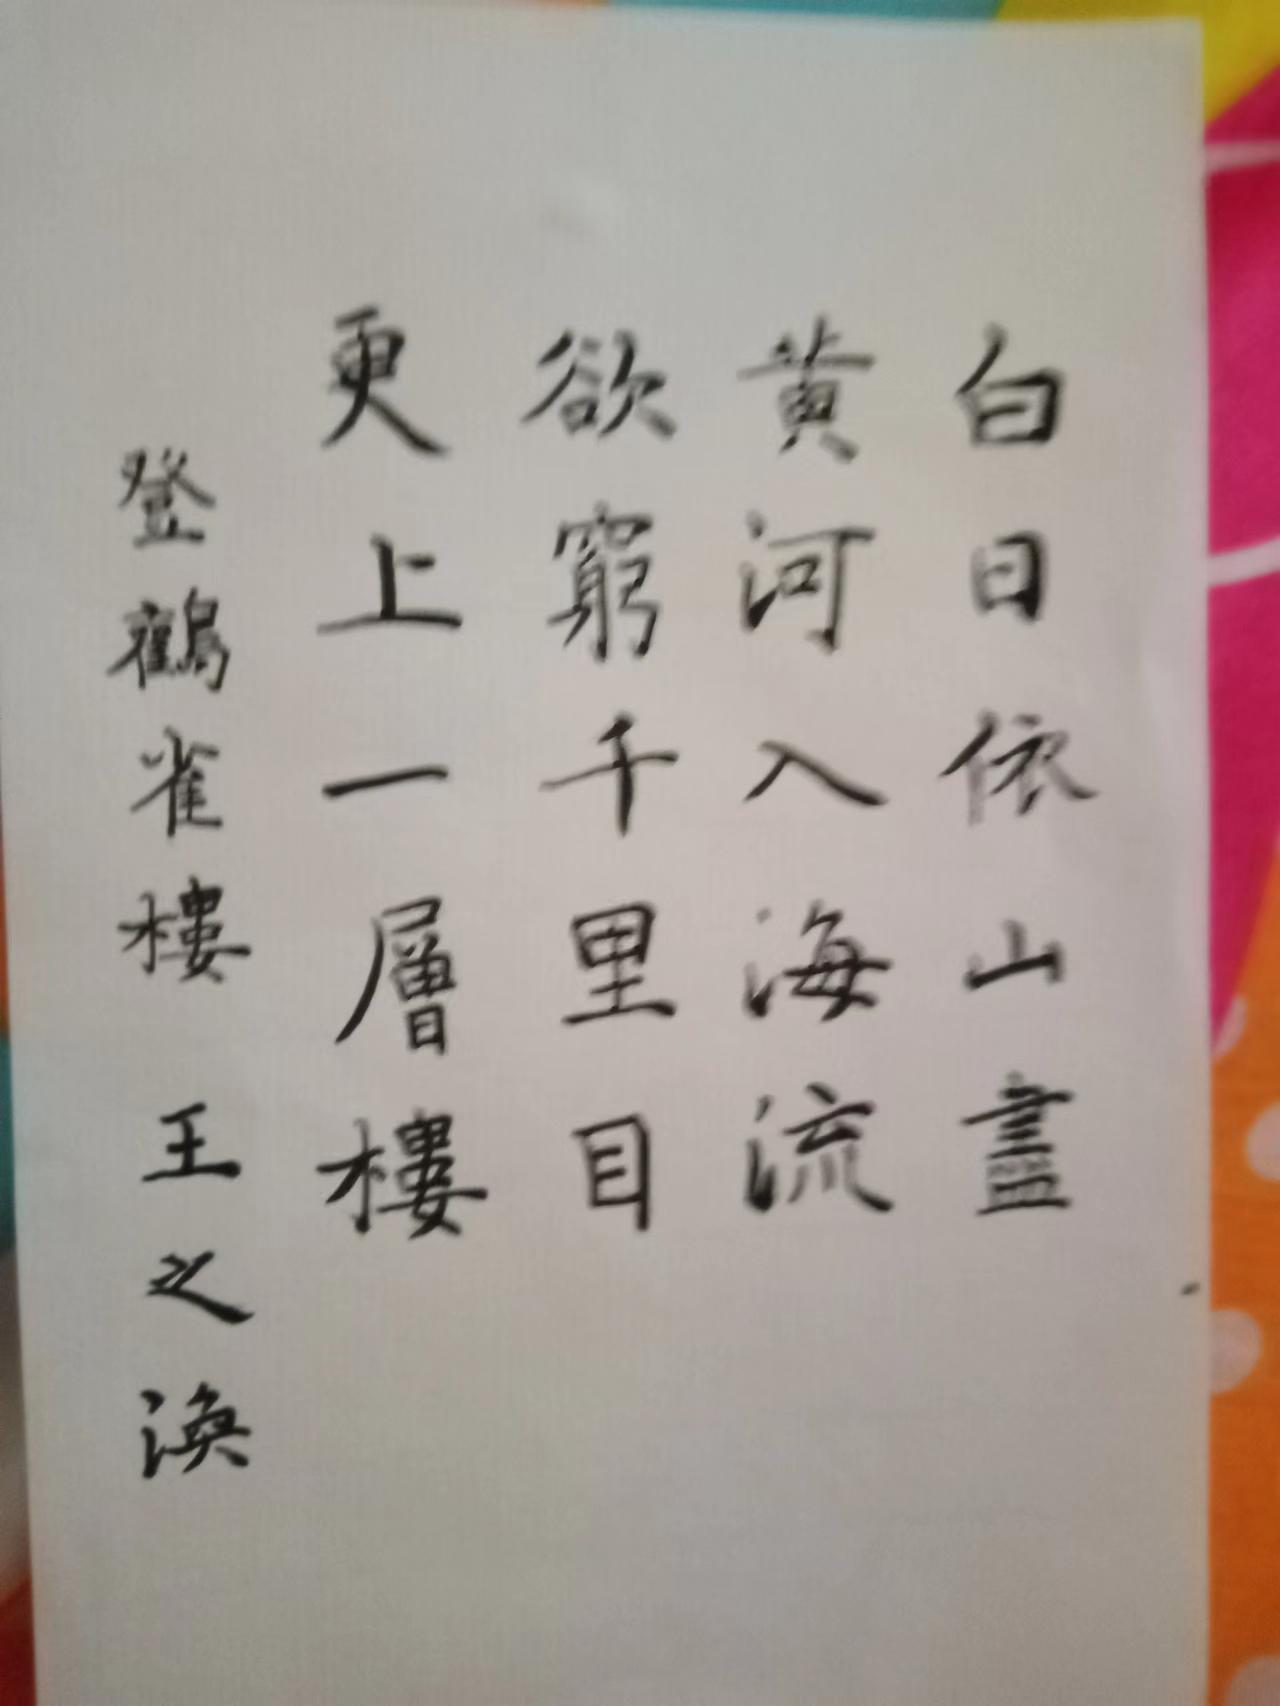 白日依山盡
黄河入海流
欲窮千里目
更上一層樓
登鸛雀樓 王之渙